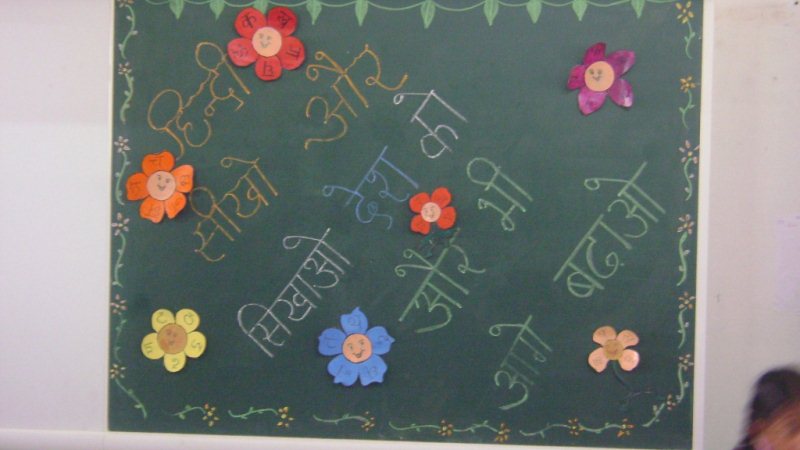 हिंदी
सीखो और
सिखाओ देश को
और भी
आगे बढाओ